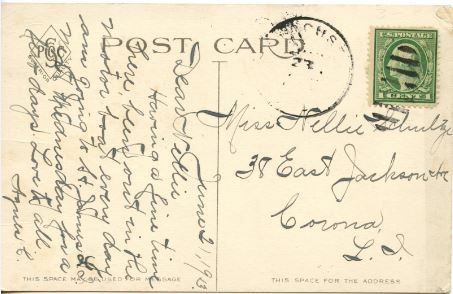 POST CARD
U.S. POSTAGE
1 CENT 1
June 21, 1913
Dear Nellie
Having a fine time
here being out in the
motor boat every day
am going to St. James L.I.
Wednesday for a
few days Love to all
Agnes C.
Miss Nellie
38 East Jackson Ave
Corona,
L. I.
THIS SPACE MAY BE USED FOR MESSAGE
THIS SPACE FOR THE ADDRESS